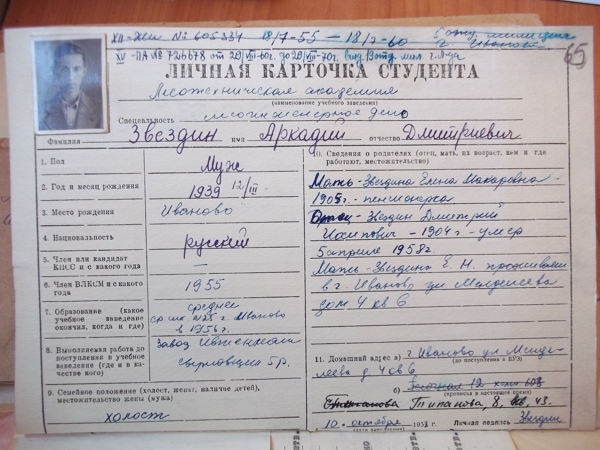 XII-ЖИ № 605334 18/7-55 – 18/7-60
XV-ПА № 726678 от 20/VIII-60г. до 20/VIII-70г. выд. 13 отд. мил.
65
ЛИЧНАЯ КАРТОЧКА СТУДЕНТА
Лесотехническая академия
(наименование учебного заведения)
Специальность лесоинженерное дело
Фамилия Звездин имя Аркадий отчество Дмитриевич
1. Пол Муж
2. Год и месяц рождения 1939 12/III
3. Место рождения Иваново
4. Национальность русский
5. Член или кандидат КПСС и с какого года —
6. Член ВЛКСМ и с какого года 1955
7. Образование (какое учебное заведение окончил, когда и где) среднее
ср. шк №25 г. Иваново
в 1956г.
8. Выполняемая работа до поступления в учебное заведение (где и в качестве кого) завод
сверловщик 5р.
9. Семейное положение (холост, женат, наличие детей), местожительство жены (мужа)
холост
10. Сведения о родителях (отец, мать, их возраст, кем и где работают, местожительство)
Мать - Звездина Елена Макаровна -
1905г. - пенсионерка
Отец - Звездин Дмитрий
- 1904г - умер
5 апреля 1958г
Мать - Звездина Е. проживает
в г Иваново ул Менделеева
дом 4 кв 6
11. Домашний адрес а) г. Иваново ул Менде-
(до поступления в ВУЗ)
леева д 4 кв 6
б) 12
(прописка в настоящее время)
Типанова, 8, кв. 43.
10 октября 195 г. Личная подпись Звездин
(дата заполнения)